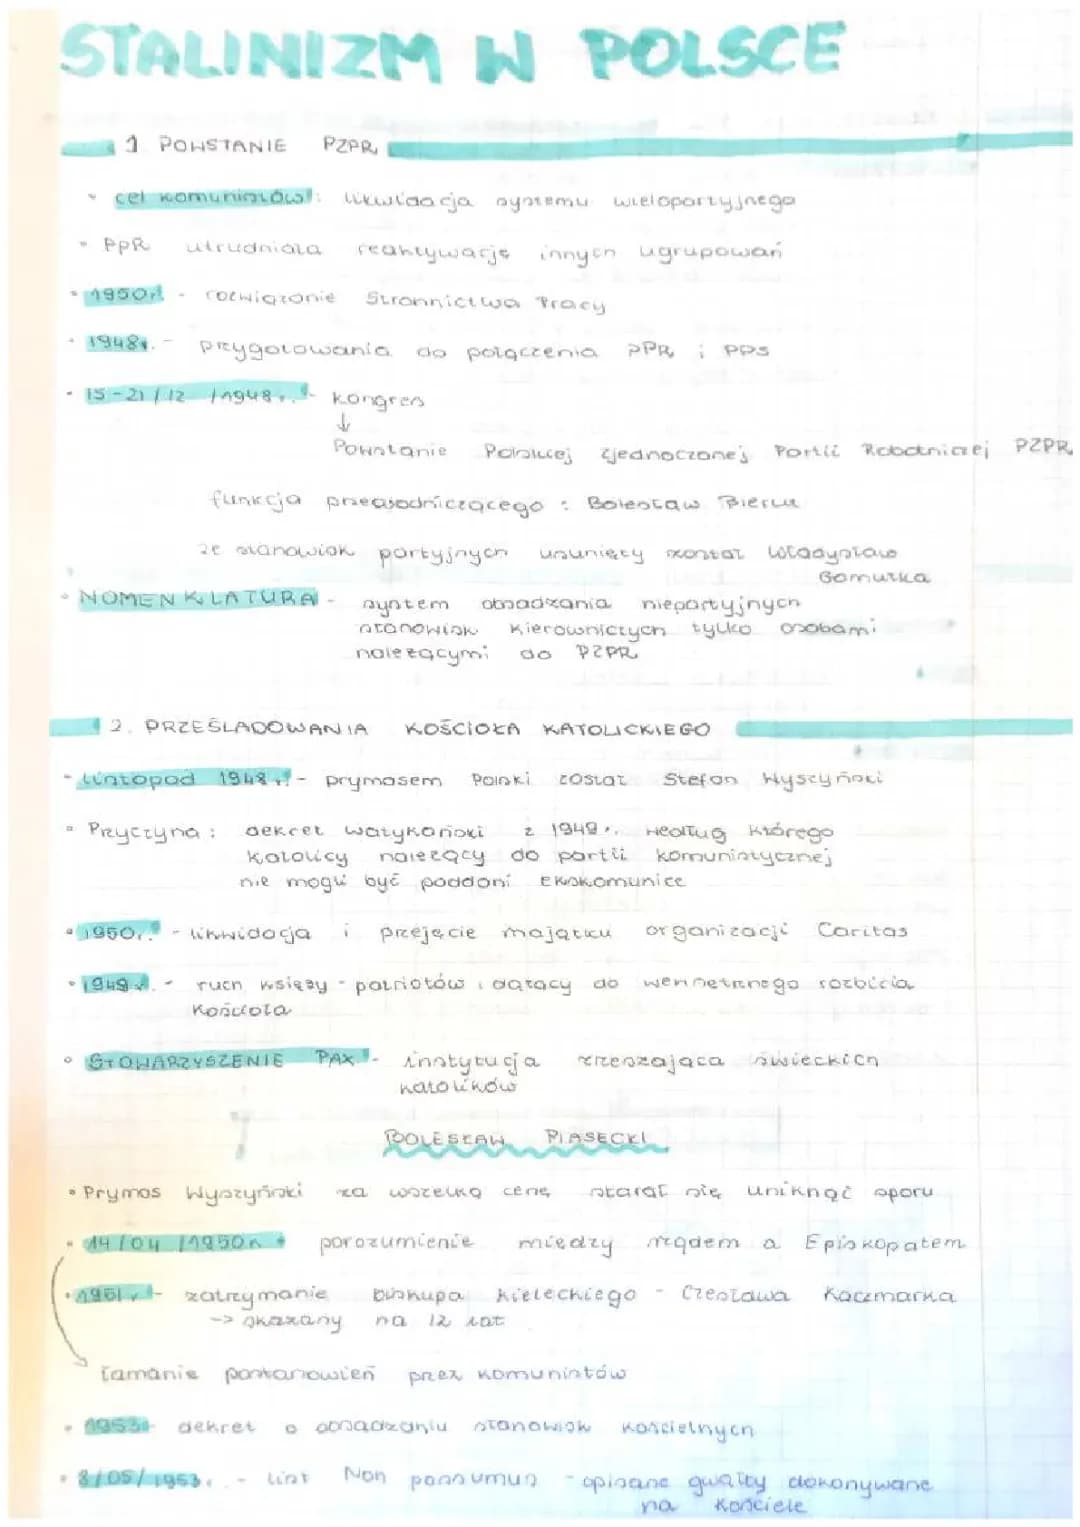 STALINIZM W POLSCE
1. POWSTANIE PZPR
cel komunistów: likwidacja systemu wielopartyjnego
PPR utrudniała reaktywację innych ugrupowań
1950r. - rozwiązanie Stronnictwa Pracy
1948r. - przygotowania do połączenia PPR i PPS
15-21/12/1948r. - kongres
↓
Powstanie Polskiej Zjednoczonej Partii Robotniczej PZPR
funkcja przewodniczącego : Bolesław Bierut
ze stanowisk partyjnych usunięty został Władysław
Gomułka
NOMENKLATURA - system obsadzania niepartyjnych
stanowisk kierowniczych tylko osobami
należącymi do PZPR
2. PRZEŚLADOWANIA KOŚCIOŁA KATOLICKIEGO
listopad 1948r. - prymasem Polski został Stefan Wyszyński
Przyczyna: dekret watykański z 1949r. według którego
katolicy należący do partii komunistycznej
nie mogli być poddani ekskomunice
1950r. - likwidacja i przejęcie majątku organizacji Caritas
1949r. - ruch księży - patriotów, dążący do wewnętrznego rozbicia
Kościoła
STOWARZYSZENIE PAX - instytucja zrzeszająca świeckich
katolików
BOLESŁAW PIASECKI
Prymas Wyszyński za wszelką cenę starał się uniknąć sporu
14/04/1950r. porozumienie między rządem a Episkopatem
1951r. - zatrzymanie biskupa kieleckiego - Czesława Kaczmarka
-> skazany na 12 lat
łamanie postanowień przez komunistów
1953r. dekret o obsadzaniu stanowisk kościelnych
8/05/1953r. - list Non possumus - opisane gwałty dokonywane
na Kościele